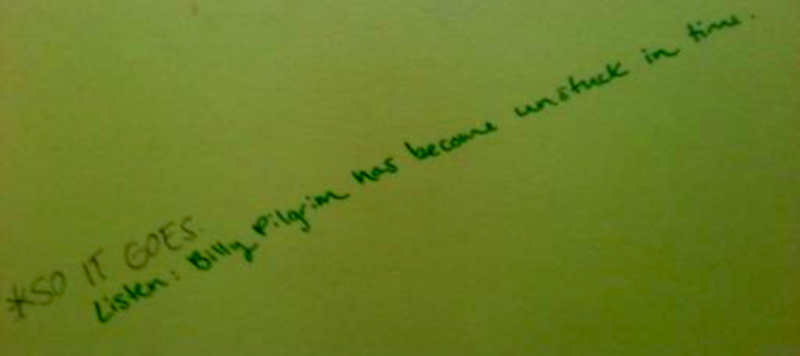 *SO IT GOES.
Listen: Billy Pilgrim has become unstuck in time.